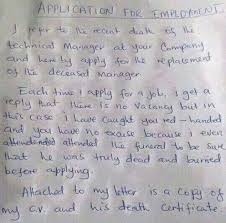 APPLICATION FOR EMPLOYMENT
I refer to the recent death of the
technical Manager at your Company
and hereby apply for the replacement
of the deceased manager.
Each time I apply for a job, I get a
reply that there is no Vacancy but in
this case I have caught you red-handed
and you have no excuse because I even
attended the funeral to be sure
that he was truly dead and buried
before applying.
Attached to my letter is a copy of
my C.V. and his death Certificate.